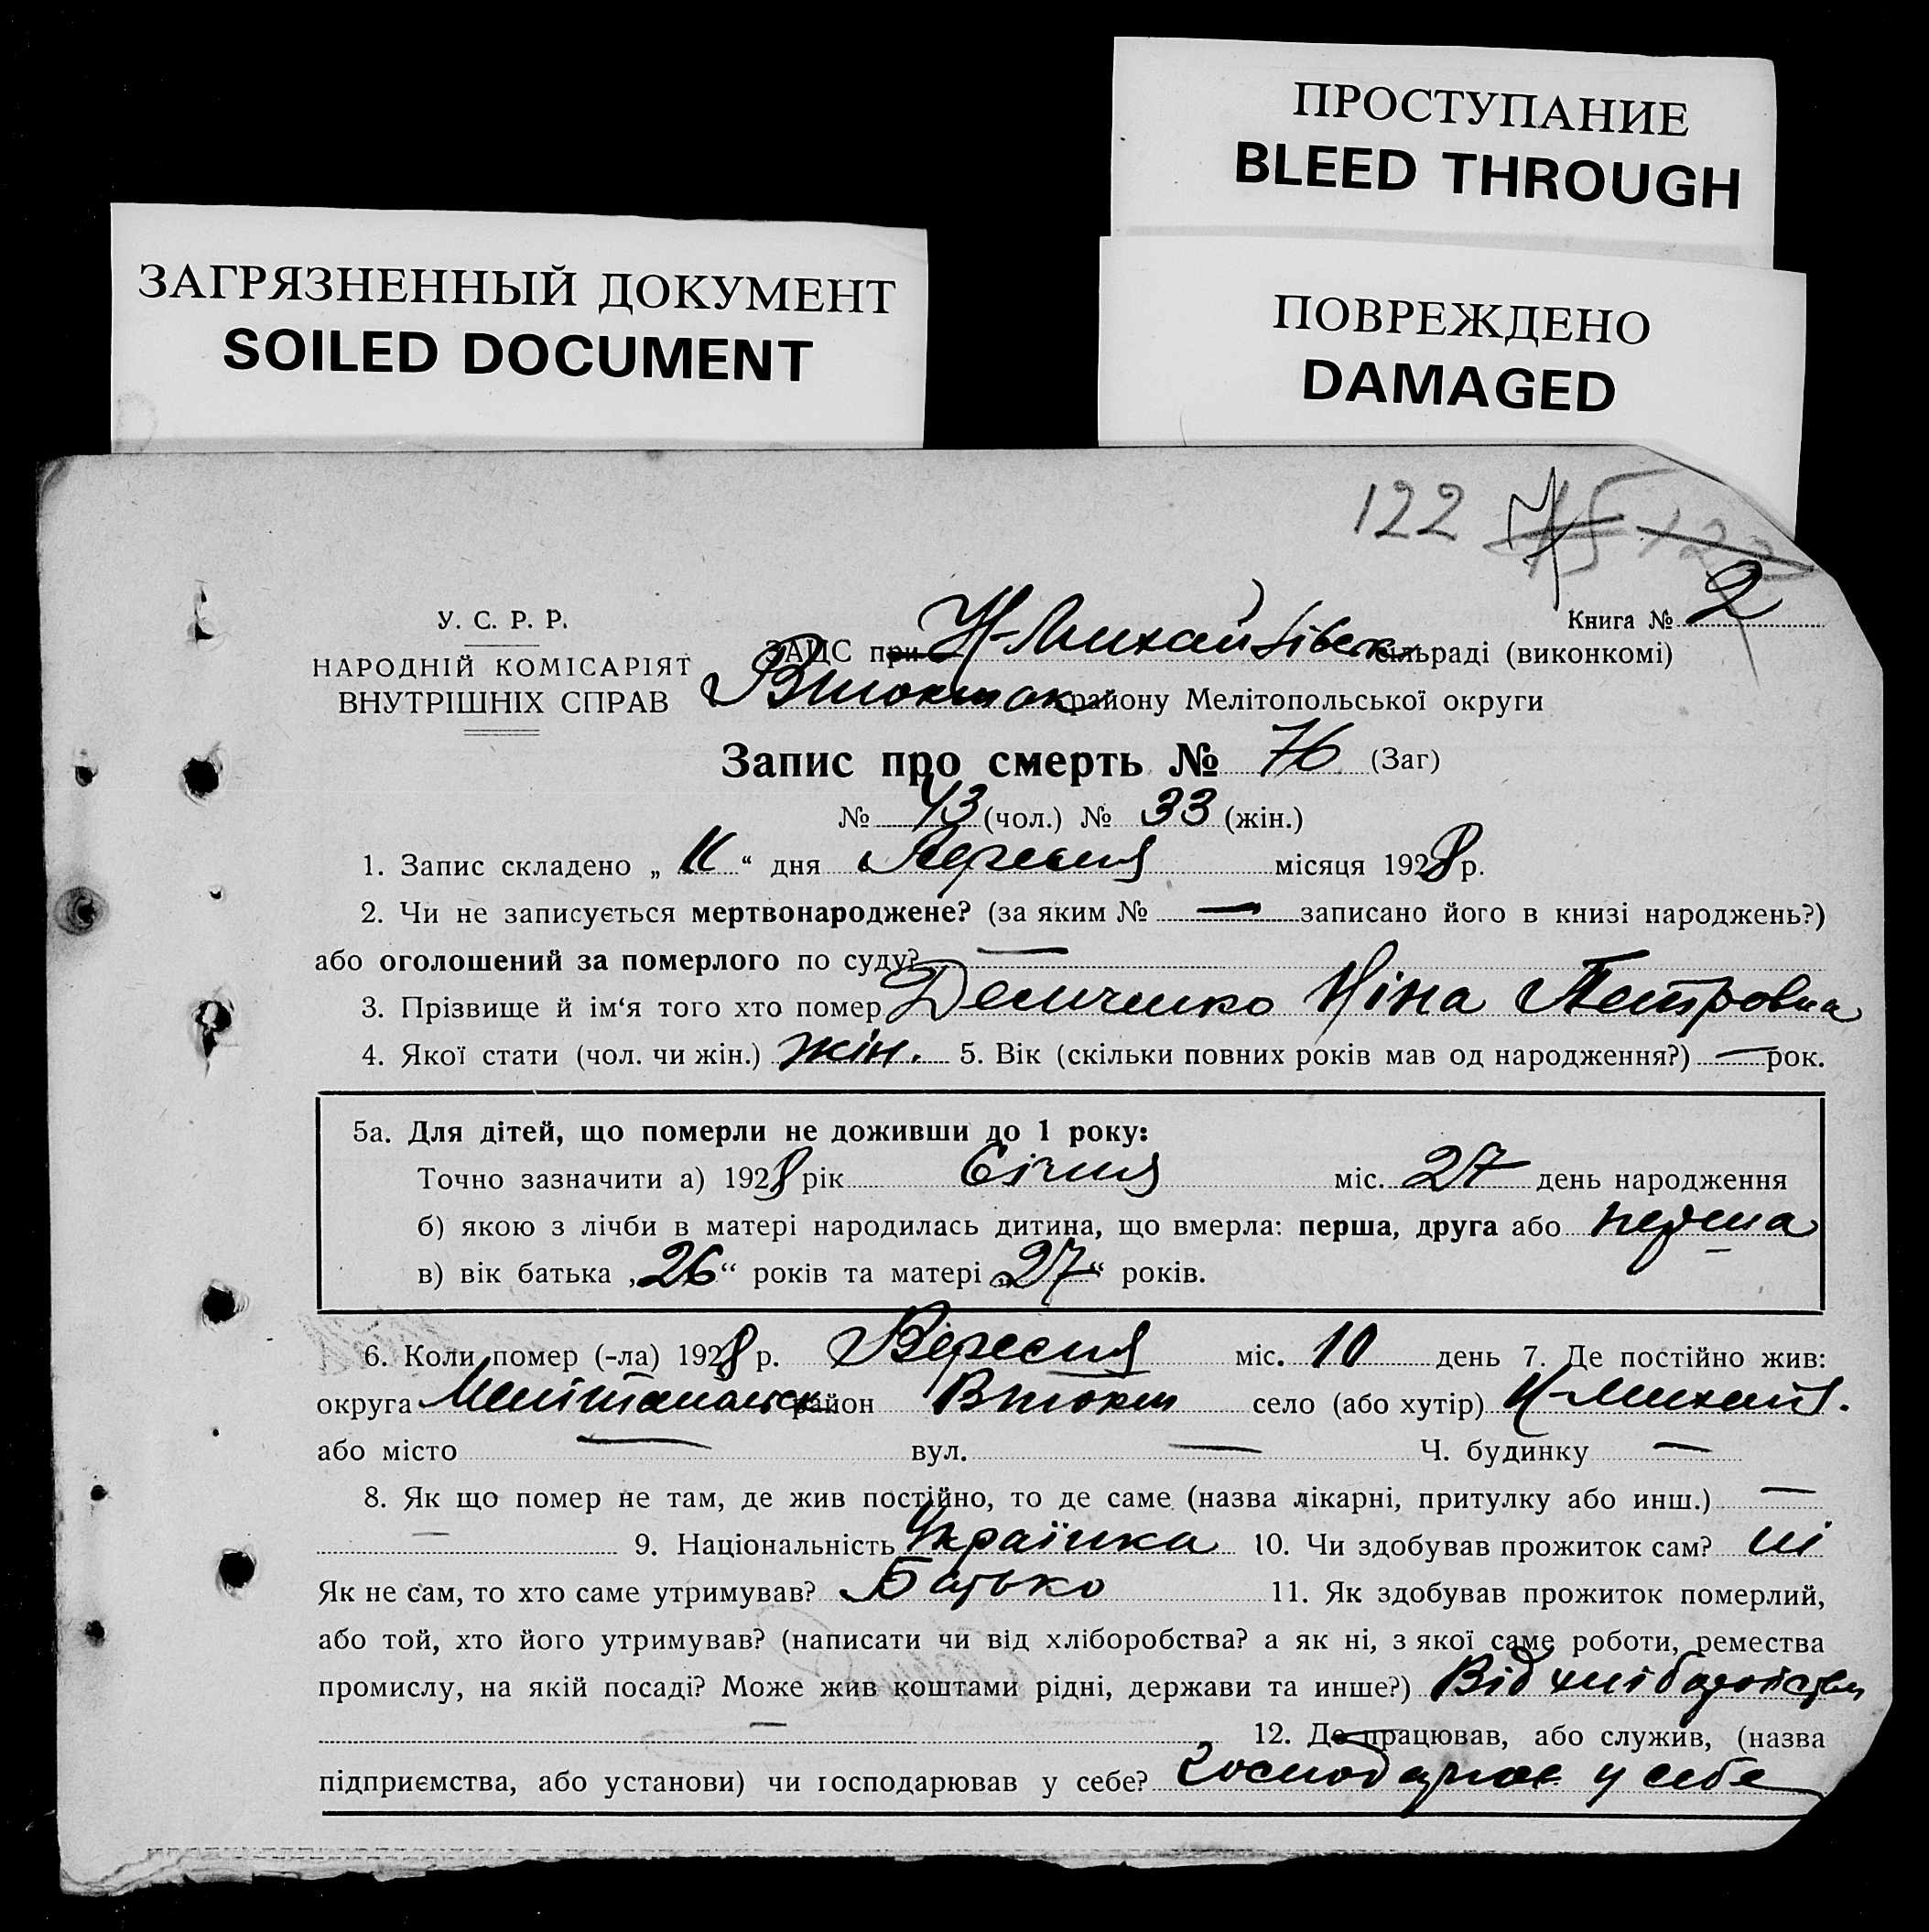 ПРОСТУПАНИЕ
BLEED THROUGH
ЗАГРЯЗНЕННЫЙ ДОКУМЕНТ
SOILED DOCUMENT
ПОВРЕЖДЕНО
DAMAGED
122 75 122
Книга № 2
У. С. Р. Р.
НАРОДНІЙ КОМІСАРІЯТ
ВНУТРІШНІХ СПРАВ
ЗАЦС при Н-Михайлівск сільраді (виконкомі)
Втокмак району Мелітопольської округи
Запис про смерть № 76 (Заг)
№ 43 (чол.) № 33 (жін.)
1. Запис складено „ 11 “ дня Вересня місяця 1928 р.
2. Чи не записується мертвонароджене? (за яким № — записано його в книзі народжень?)
або оголошений за померлого по суду? —
3. Прізвище й ім‘я того хто помер Демченко Ніна Петровна
4. Якої стати (чол. чи жін.) жін. 5. Вік (скільки повних років мав од народження?) — рок.
5а. Для дітей, що померли не доживши до 1 року:
Точно зазначити а) 1928 рік Січня міс. 27 день народження
б) якою з лічби в матері народилась дитина, що вмерла: перша, друга або перша
в) вік батька „26“ років та матері „27“ років.
6. Коли помер (-ла) 1928 р. Вересня міс. 10 день 7. Де постійно жив:
округа Мелітопольск район Втокм село (або хутір) Н-Михайл.
або місто — вул. — Ч. будинку —
8. Як що помер не там, де жив постійно, то де саме (назва лікарні, притулку або инш.) —
— 9. Національність Українка 10. Чи здобував прожиток сам? ні
Як не сам, то хто саме утримував? Батько 11. Як здобував прожиток померлий,
або той, хто його утримував? (написати чи від хліборобства? а як ні, з якої саме роботи, ремества
промислу, на якій посаді? Може жив коштами рідні, держави та инше?) Від хліборобства
— 12. Де працював, або служив, (назва
підприємства, або установи) чи господарював у себе? господарює у себе